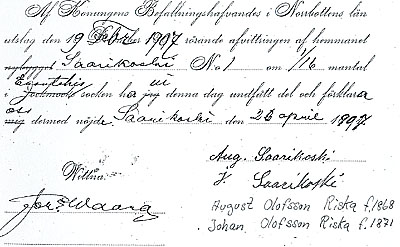 Af Konungens Befallningshafvandes i Norrbottens län
utslag den 19 1907 rörande afvittringen af hemmanet
nybygget Saarikoski No 1 om /16 mantal
i Jockmock socken ha vi jag denna dag undfått del och förklara
oss mig dermed nöjde. Saarikoski den 26 april 1897.
Aug. Saarikoski
J. Saarikoski
Wittna:
Joh. Waara
August Olofsson Riska f. 1868
Johan Olofsson Riska f. 1871